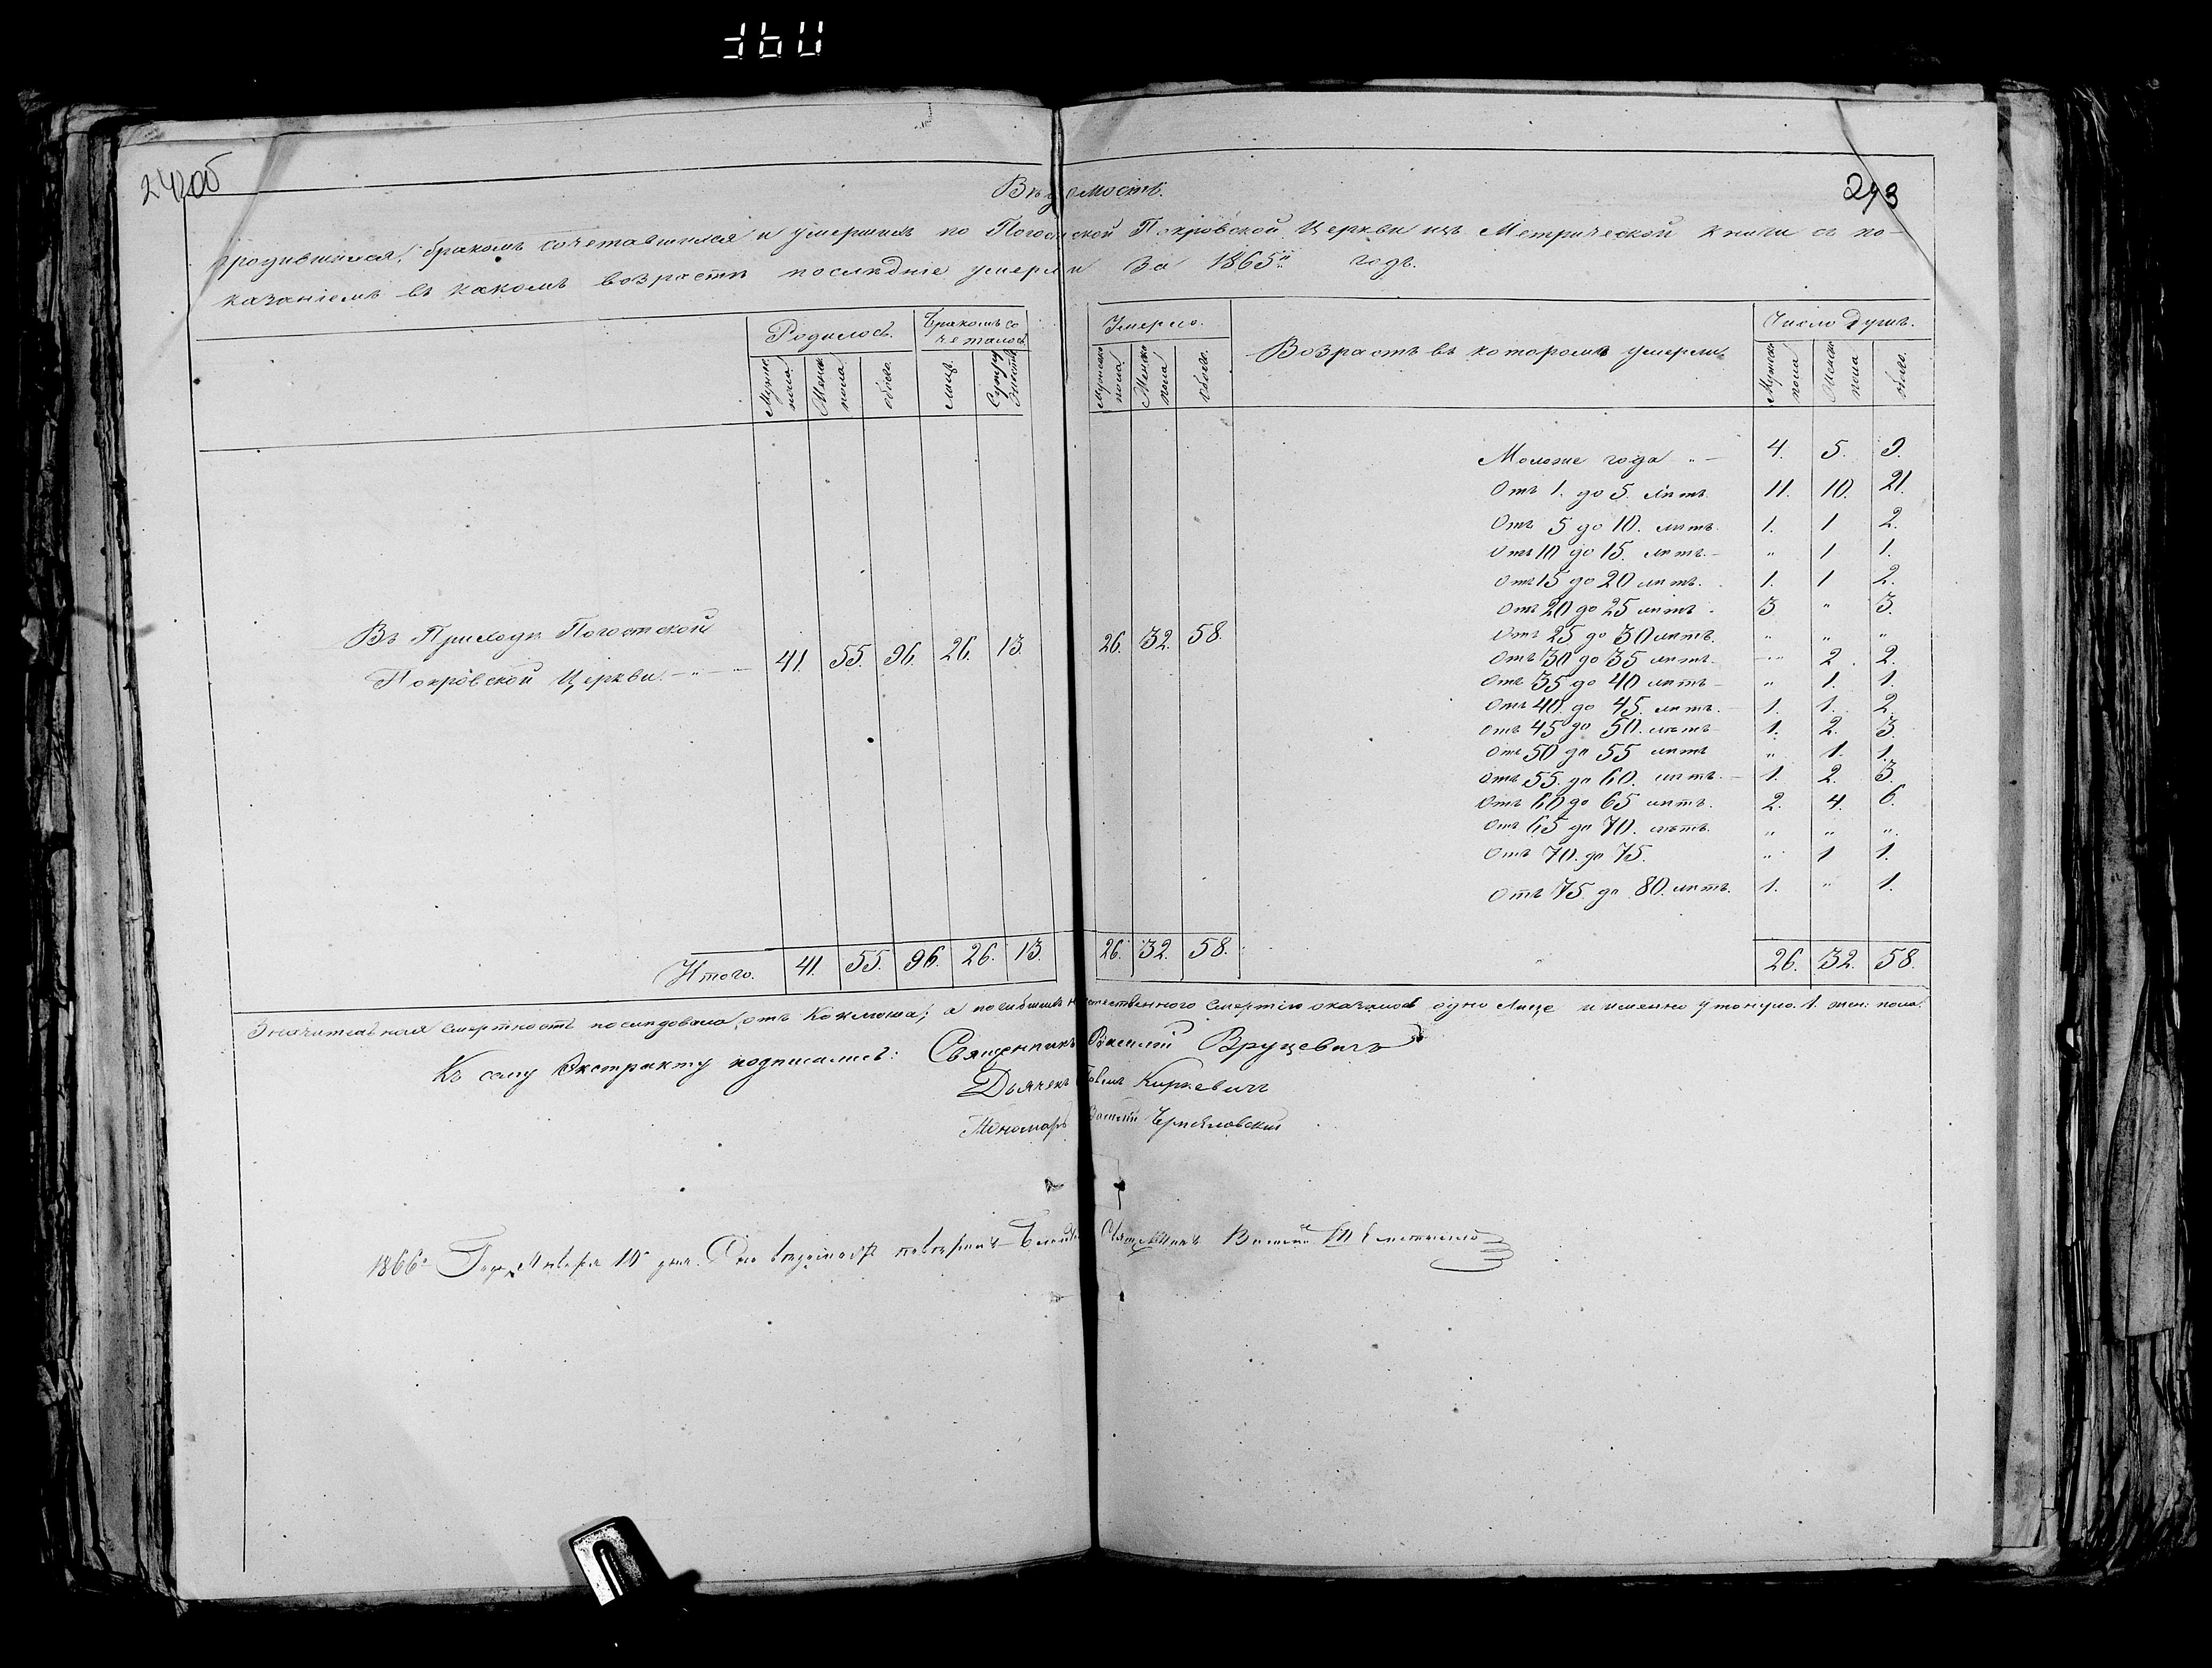 242об
243
Вѣдомость
родившихся, бракомъ сочетавшихся и умершихъ по Погостской Покровской Церкви изъ Метрической книги съ по-
казаніемъ въ какомъ возрастѣ послѣдніе умерли За 1865й годъ.
Родилось. Бракомъ со четалось Умерло. Возрастъ въ которомъ умерли Число душъ.
Мужск пола Женск пола обоего лицъ Супру жествъ Мужеска пола Женска пола Обоего. Мужеска пола Женска пола обоего.
Моложе года „ — 4. 5. 9.
Отъ 1. до 5. лѣтъ. 11. 10. 21.
Отъ 5 до 10. лѣтъ. 1. 1 2.
Отъ 10 до 15. лѣтъ. — „ 1 1.
Отъ 15 до 20 лѣтъ. 1. 1 2.
Отъ 20 до 25 лѣтъ. 3 „ 3.
Отъ 25 до 30 лѣтъ. „ „ „
Отъ 30 до 35 лѣтъ. — „ 2. 2.
Отъ 35 до 40 лѣтъ — „ 1. 1.
Отъ 40. до 45. лѣтъ. — 1. 1. 2.
Отъ 45 до 50. лѣтъ — 1. 2. 3.
Отъ 50 до 55 лѣтъ „ 1. 1.
Отъ 55. до 60. лѣтъ. — 1. 2. 3.
Отъ 60 до 65 лѣтъ. 2. 4. 6.
Отъ 65 до 70. лѣтъ. „ „ „.
Отъ 70. до 75. „ 1 1.
Отъ 75. до 80. лѣтъ. 1. „ 1.
Въ Приходѣ Погостской
Покровской Церкви. — „ — 41. 55. 96. 26. 13. 26. 32. 58.
Итого. 41. 55. 96. 26. 13. 26. 32. 58. 26. 32. 58.
Значительная смертность послѣдовала, отъ Коклюша; а погибшихъ неестественною смертію оказалось одно Лице и именно утонуло. 1. жен: пола.
Къ сему Экстракту подписались: Священникъ Василій Вруцевичъ
Дьячекъ Павелъ Киркевичъ
Пономарь Василій
1866го Года Января 10 дня. Сію вѣдомость повѣрялъ Священникъ